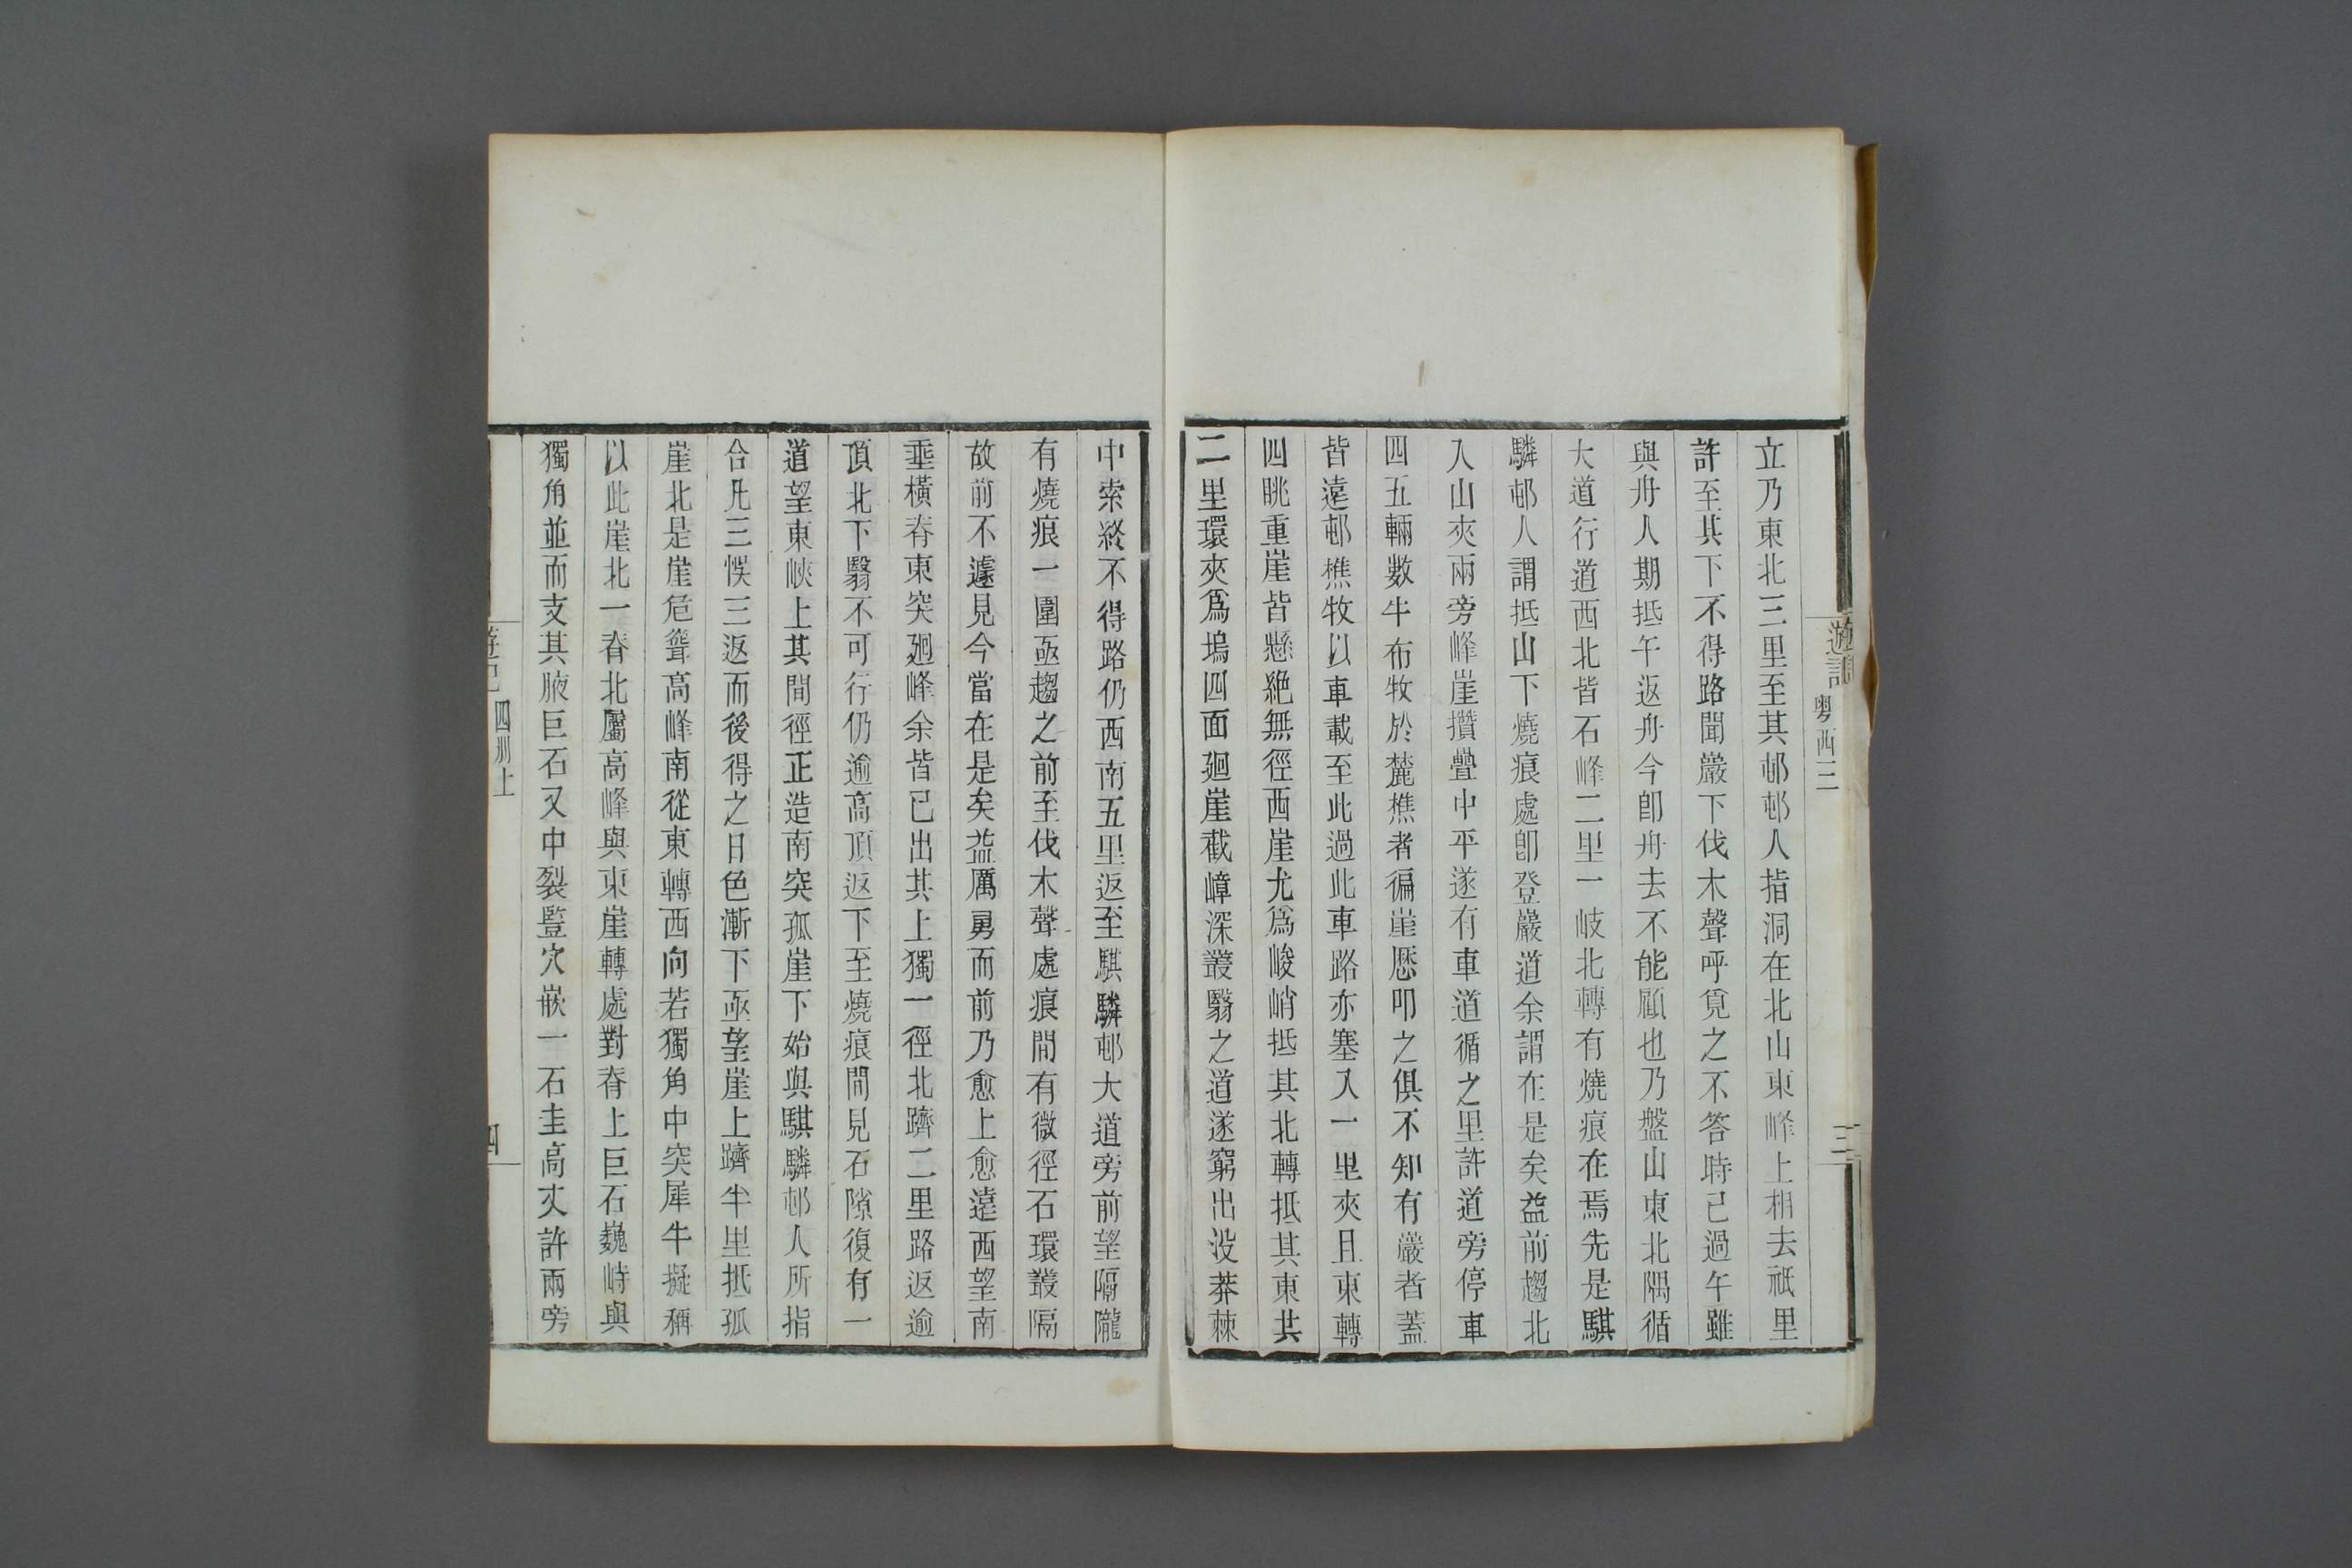 遊記
粵西三
三
立乃東北三里至其邨邨人指洞在北山東峰上相去祇里
許至其下不得路聞巖下伐木聲呼覓之不答時已過午雖
與舟人期抵午返舟今卽舟去不能顧也乃盤山東北隅循
大道行道西北皆石峰二里一岐北轉有燒痕在焉先是騏
驎邨人謂抵山下燒痕處卽登巖道余謂在是矣益前趨北
入山夾兩旁峰崖攢疊中平遂有車道循之里許道旁停車
四五輛數牛布牧於麓樵者徧崖歷叩之俱不知有巖者蓋
皆遠邨樵牧以車載至此過此車路亦塞入一里夾且東轉
四眺重崖皆懸絶無徑西崖尤爲峻峭抵其北轉抵其東共
二里環夾爲塢四面廻崖截嶂深叢翳之道遂窮出没莽棘
中索終不得路仍西南五里返至騏驎邨大道旁前望隔隴
有燒痕一圍亟趨之前至伐木聲處痕間有微徑石環叢隔
故前不遽見今當在是矣益厲勇而前乃愈上愈遠西望南
垂橫脊東突廻峰余皆已出其上獨一徑北躋二里路返逾
頂北下翳不可行仍逾高頂返下至燒痕間見石隙復有一
道望東峽上其間徑正造南突孤崖下始與騏驎邨人所指
合凡三悞三返而後得之日色漸下亟望崖上躋半里抵孤
崖北是崖危聳高峰南從東轉西向若獨角中突犀牛擬稱
以此崖北一脊北屬高峰與東崖轉處對脊上巨石巍峙與
獨角並而支其腋巨石又中裂豎穴嵌一石圭高丈許兩旁
遊記
四 上
四